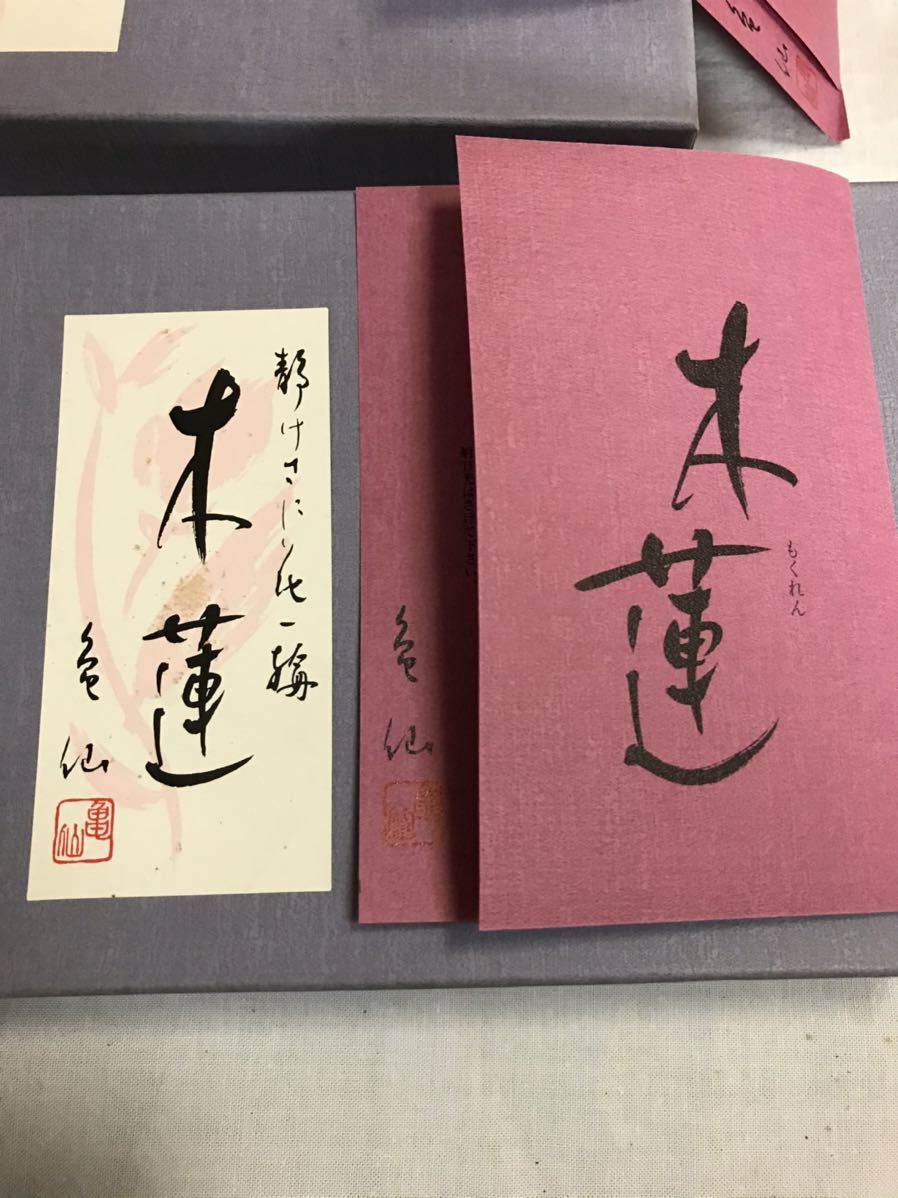 静けさに花一輪
木蓮
亀仙
亀仙
木蓮
もくれん
亀仙